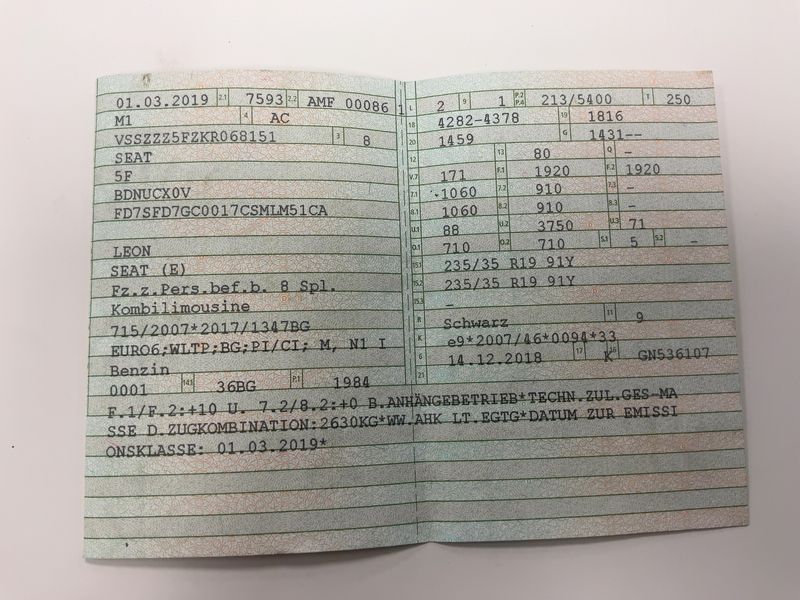 01.03.2019 2.1 7593 2.2 AMF 00086 1
M1 4 AC
VSSZZZ5FZKR068151 3 8
SEAT
5F
BDNUCX0V
FD7SFD7GC0017CSMLM51CA
LEON
SEAT (E)
Fz.z.Pers.bef.b. 8 Spl.
Kombilimousine
715/2007*2017/1347BG
EURO6;WLTP;BG;PI/CI; M, N1 I
Benzin
0001 14.1 36BG P.1 1984
L 2 9 1 P.2 P.4 213/5400 T 250
18 4282-4378 19 1816
20 1459 G 1431--
12 13 80 Q -
V.7 171 F.1 1920 F.2 1920
7.1 1060 7.2 910 7.3 -
8.1 1060 8.2 910 8.3 -
U.1 88 U.2 3750 U.3 71
O.1 710 O.2 710 S.1 5 S.2 -
15.1 235/35 R19 91Y
15.2 235/35 R19 91Y
15.3 -
R Schwarz 11 9
K e9*2007/46*0094*33
6 14.12.2018 17 K 16 GN536107
21
F.1/F.2:+10 U. 7.2/8.2:+0 B.ANHÄNGEBETRIEB*TECHN.ZUL.GES-MA
SSE D.ZUGKOMBINATION:2630KG*WW.AHK LT.EGTG*DATUM ZUR EMISSI
ONSKLASSE: 01.03.2019*